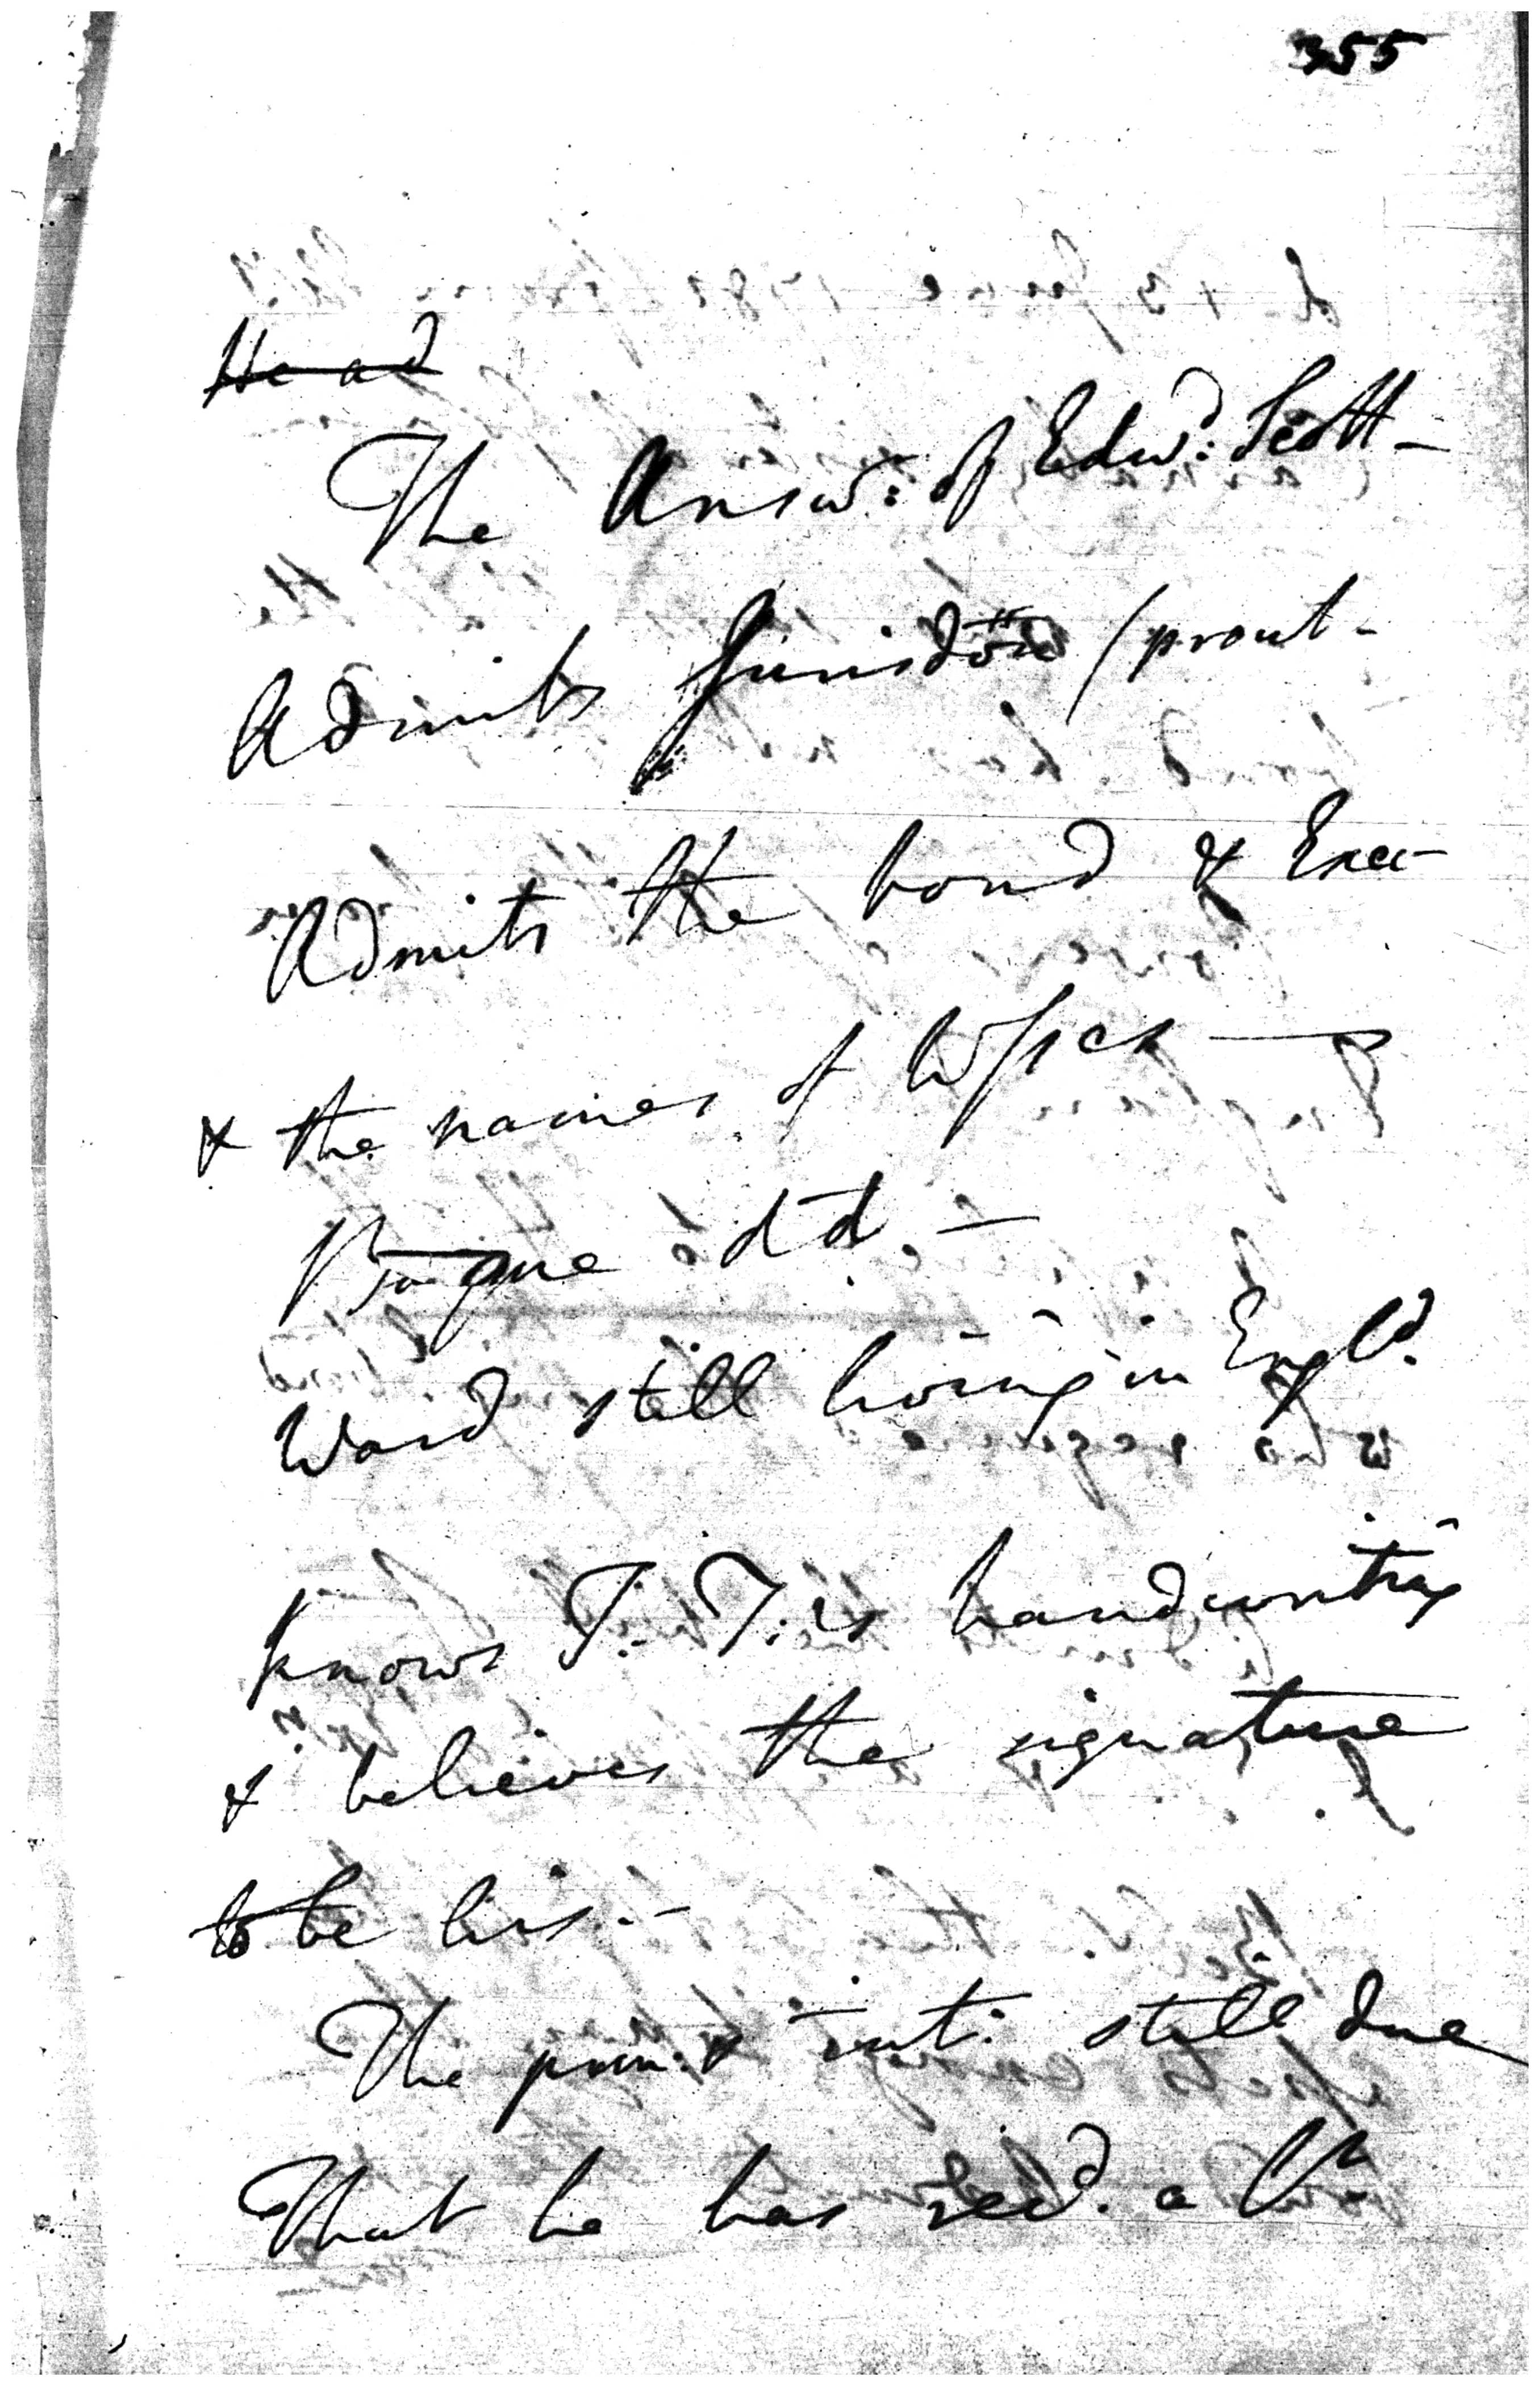 355
He ad
The Answ: of Edwd: Scott -
Admits Jurisdōn (prout -
Admits the bond & Exec-
& the names of Wsses —
dd. -
Ward still living in Engld.
knows T. T.'s handwriting
& believes the signature
to be his. -
The prin: & int: still due
That he has recd. a